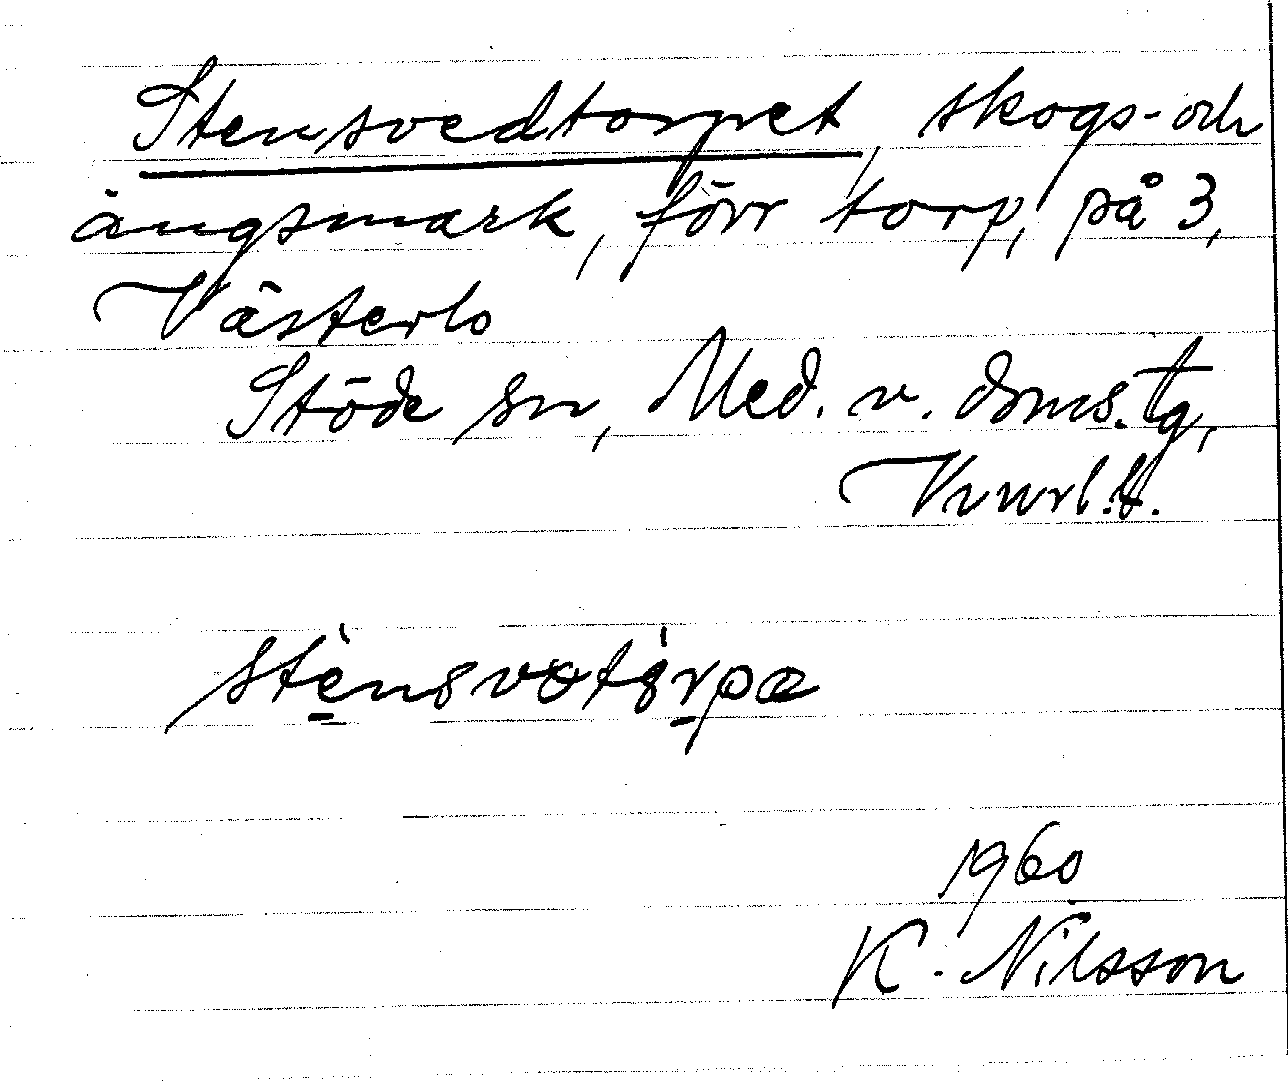 Stensvedtorpet, skogs- och
ängsmark, förr torp, på 3,
Västerlo
Stöde sn, Med. v. doms. tg,
Vnorrl. l.
1960
K. Nilsson